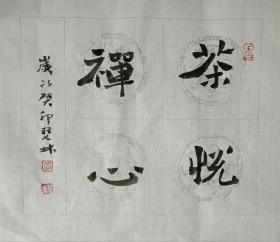 茶悦
禪心
歲次癸卯